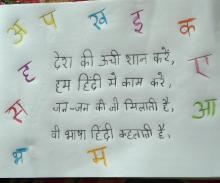 अ प ख इ क
ह ए
देश की ऊची शान करें,
हम हिंदी में काम करें,
जन-जन की जो मिलाती है,
वो भाषा हिंदी कहलाती है,
स आ
भ म